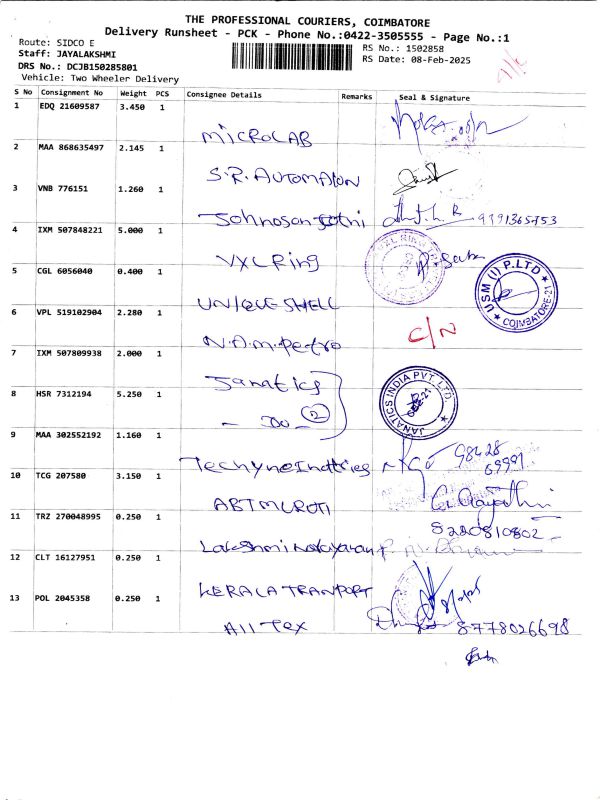 THE PROFESSIONAL COURIERS, COIMBATORE
Delivery Runsheet - PCK - Phone No.:0422-3505555 - Page No.:1
Route: SIDCO E
Staff: JAYALAKSHMI
DRS No.: DCJB150285801
Vehicle: Two Wheeler Delivery
RS No.: 1502858
RS Date: 08-Feb-2025
S No Consignment No Weight PCS Consignee Details Remarks Seal & Signature
1 EDQ 21609587 3.450 1
MICROLAB
2 MAA 868635497 2.145 1
S.R. AUTOMAION
3 VNB 776151 1.260 1
Johnoson Jothi 9791365753
4 IXM 507848221 5.000 1
VXL Ring
5 CGL 6056040 0.400 1
USM (I) P.LTD
COIMBATORE-21
UNIQUE SHELL
6 VPL 519102904 2.280 1
N.A.M. Petro C/N
7 IXM 507809938 2.000 1
Janatics
8 HSR 7312194 5.250 1
- DO - 2
JANATICS INDIA PVT. LTD.
9 MAA 302552192 1.160 1
Techyne Indtries 98428
69991
10 TCG 207580 3.150 1
ABT MURUTI
8220810802
11 TRZ 270048995 0.250 1
Lakshmi Narayanan
12 CLT 16127951 0.250 1
KERALA TRANPORT
13 POL 2045358 0.250 1
All Tex 8778026698